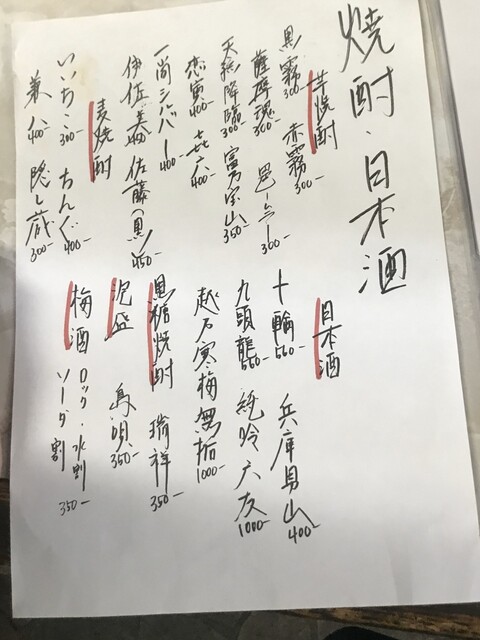 焼酎・日本酒
芋焼酎
黒霧 300- 赤霧 300-
薩摩魂 300-
天孫降臨 300- 富乃宝山 350-
恋寅 400- 喜六 400-
一尚シルバー 400-
伊佐美 佐藤(黒) 450
麦焼酎
いいちこ 300- ちんぐ 400-
兼八 400- 隠し蔵 300-
日本酒
十輪 550- 兵庫男山 400-
九頭龍 550- 純吟 六友 1000-
越乃寒梅 無垢 1000-
黒糖焼酎 瑞祥 350-
泡盛 島唄 350-
梅酒 ロック・水割
ソーダ割 350-